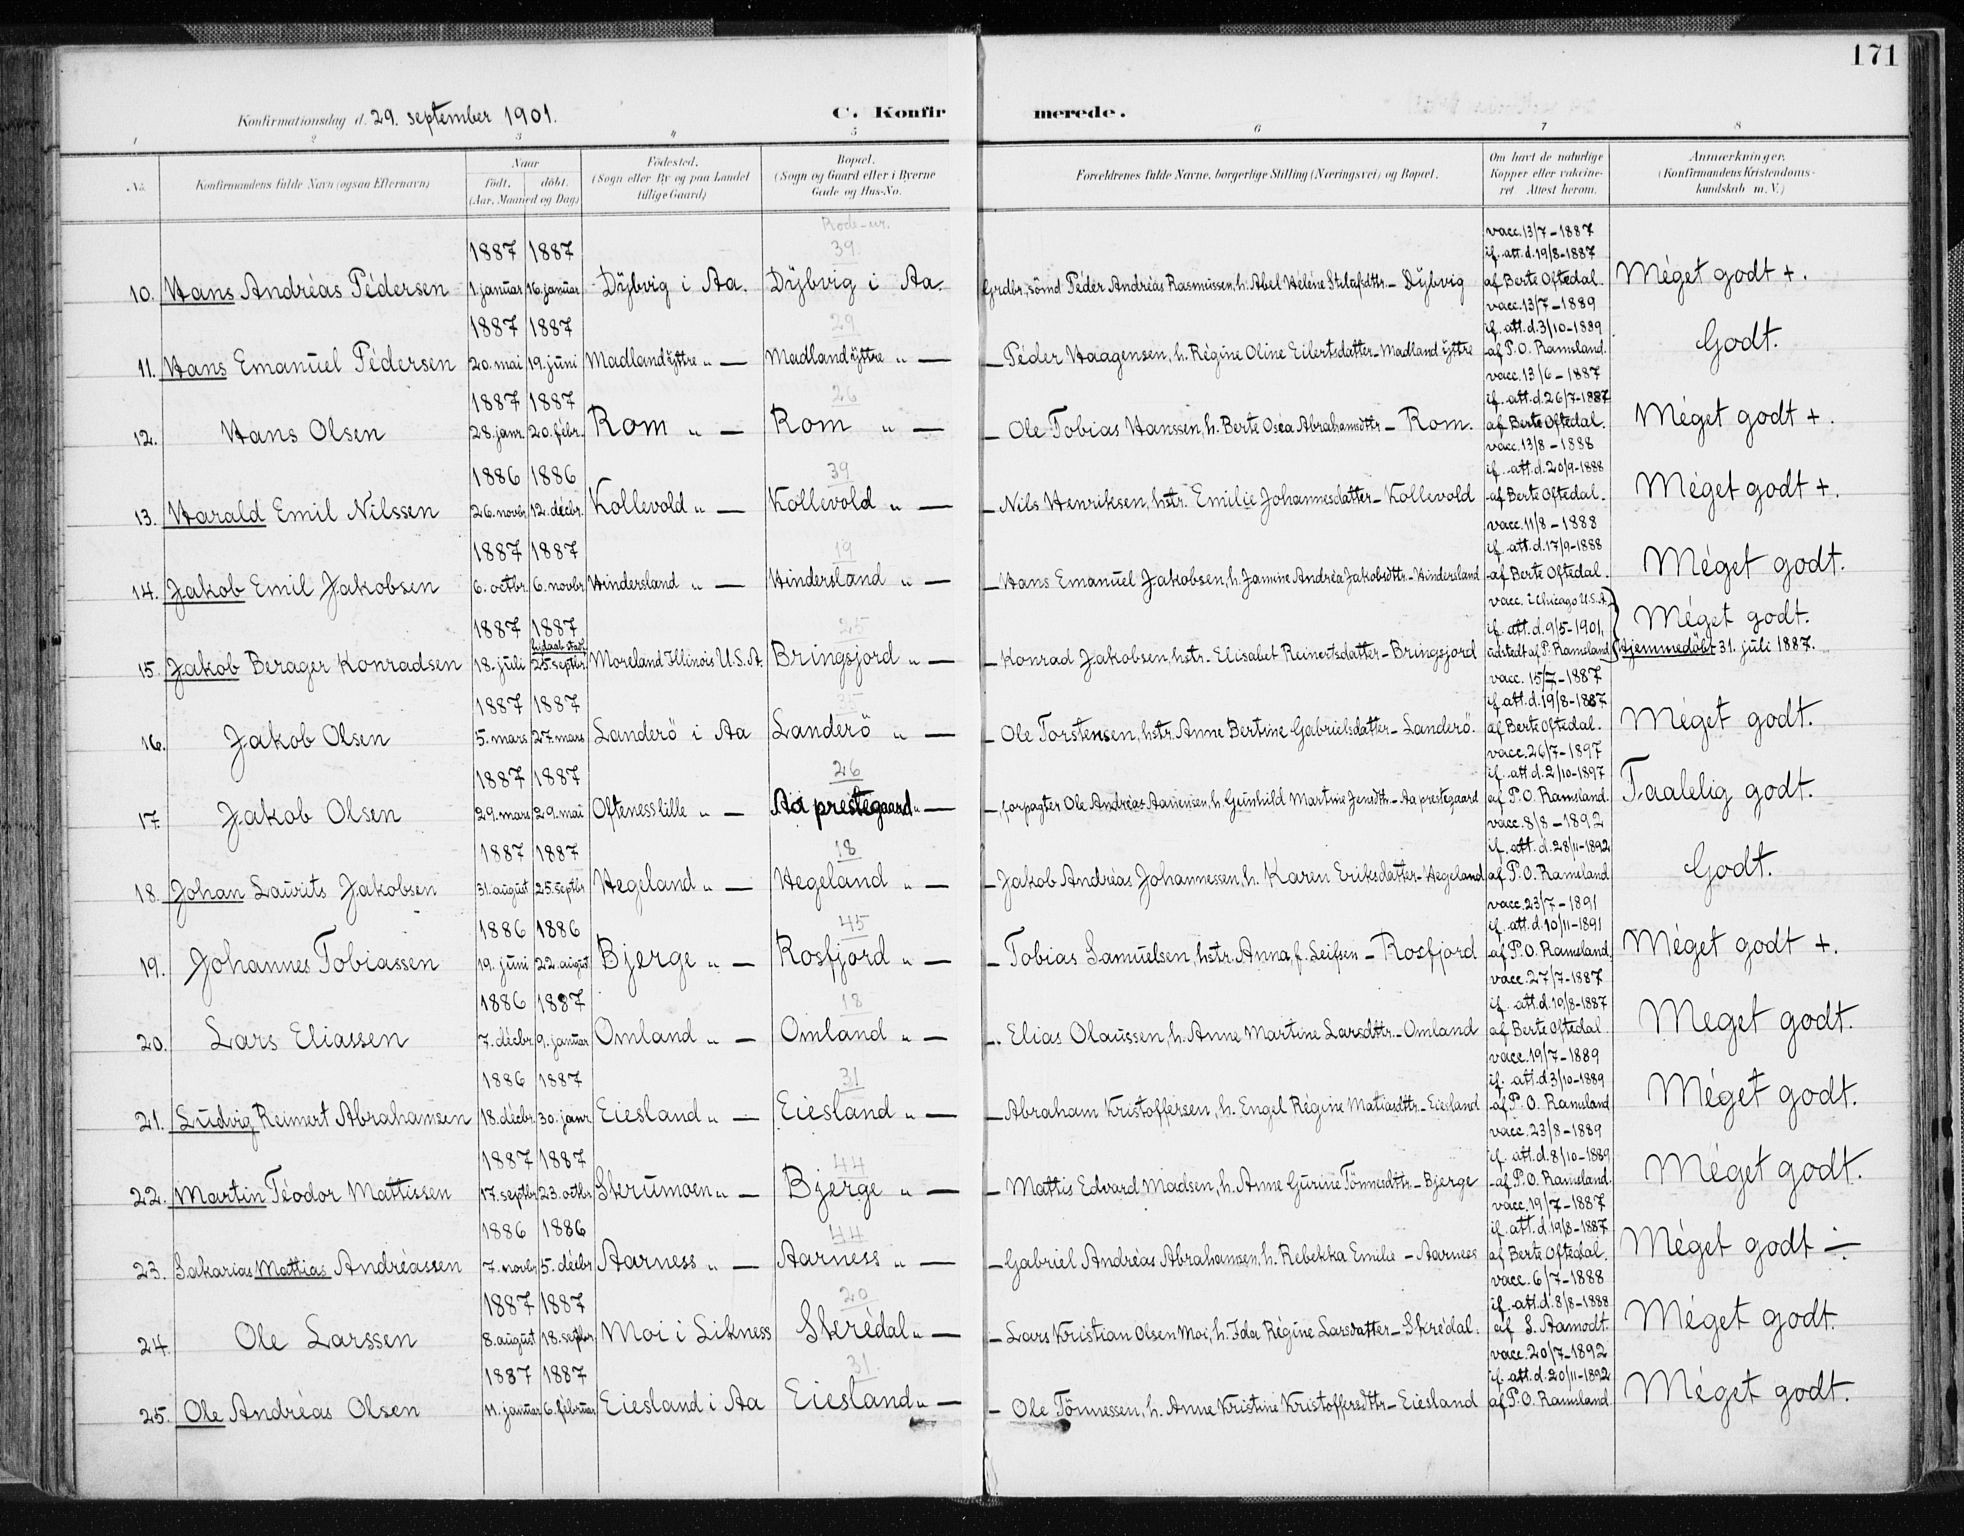 171
Konfirmationsdag d. 29. september 1901.
C. Konfirmerede.
1 2 3 4 5 6 7 8
No. Konfirmandens fulde Navn (ogsaa Efternavn) Naar födt. döbt. (Aar, Maaned og Dag) Födested. (Sogn eller By og paa Landet tillige Gaard) Bopæl. (Sogn og Gaard eller i Byerne Gade og Hus-No. Forældrenes fulde Navne, borgerlige Stilling (Næringsvei) og Bopæl. Om havt de naturlige Kopper eller vakcineret. Attest herom. Anmærkninger. (Konfirmandens Kristendomskundskab m. V.)
Rode-nr.
1887 1887 39 vacc. 13/7-1887 if. att. d. 19/8-1887
10. Hans Andréas Pédersen 1 januar 16. januar Dÿbvig i Aa. Dÿbvig i Aa. Grdbr., sömd Péder Andréas Rasmussen, h. Abel Heléne - Dÿbvig af Berte Oftedal. Méget godt +.
1887 1887 29 vacc. 13/7-1889 if. att. d. 3/10-1889
11. Hans Emanuel Pédersen 20. mai 19. juni Madland ÿttre „ — Madland ÿttre „ — — Péder Haagensen, h. Régine Oline Eilertsdatter - Madland ÿttre af P. O. Ramsland. Godt.
1887 1887 26 vacc. 13/6-1887 if. att. d. 26/7-1887
12. Hans Olsen 28. janr. 20. febr. Rom „ — Rom „ — — Ole Tobias Hanssen, h. Berte Osea Abrahamsdttr - Rom. af Berte Oftedal. Méget godt +.
1886 1886 39 vacc. 13/8-1888 if. att. d. 20/9-1888
13. Harald Emil Nilssen 26. novbr 12. décbr. Kollevold „ — Kollevold „ — — Nils Henriksen, hstr. Emilie Johannesdatter - Kollevold af Berte Oftedal. Méget godt +.
1887 1887 19 vacc. 11/8-1888 if. att. d. 17/9-1888
14. Jakob Emil Jakobsen 6. octbr. 6. novbr. Hindersland „ — Hindersland „ — — Hans Emanuel Jakobsen, h. Jannine Andréa Jakobsdttr - Hindersland af Berte Oftedal. Méget godt.
1887 1887 25 vacc. i Chicago U.S.A. if. att. d. 9/5-1901, Méget godt.
15. Jakob Berager Konradsen 18. juli 25. septbr. Moreland Illinois U.S.A. Bringsjord „ — — Konrad Jakobsen, hstr. Elisabet Reinertsdatter - Bringsjord udstedt af P. Ramsland Hjemmedöbt 31. juli 1887.
1887 1887 vacc. 15/7-1887 if. att. d. 19/8-1887
16. Jakob Olsen 5. mars 27. mars Landerö i Aa Landerö „ — — Ole Torstensen, hstr. Anne Bertine Gabrielsdatter - Landerö. af Berte Oftedal. Méget godt.
1887 1887 26 vacc. 26/7-1897 if. att. d. 2/10-1897
17. Jakob Olsen 29. mars 29. mai Oftenesslille „ — Aa prestegaard „ — —, forpagter Ole Andréas Aanensen, h. Gunhild Martine - Aa prestegaard af P. O. Ramsland. Taalelig godt.
1887 1887 18 vacc. 8/8-1892 if. att. d. 28/11-1892
18. Johan Laurits Jakobsen 31. august 25. septbr Hegeland „ — Hegeland „ — — Jakob Andréas Johannessen, h. Karen Eriksdatter - Hegeland af P. O. Ramsland Godt.
1886 1886 45 vacc. 23/7-1891 if. att. d. 10/11-1891
19. Johannes Tobiassen 19. juni 22. august Bjerge „ — Rosfjord „ — — Tobias Samuelsen, hstr. Anna, f. Leifsen - Rosfjord af P. O. Ramsland. Méget godt +.
1886 1887 18 vacc. 27/7-1887 if. att. d. 19/8-1887
20. Lars Eliassen 7. décbr. 9. januar Omland „ — Omland „ — — Elias Olaussen, h. Anne Martine Larsdttr. - Omland af Berte Oftedal. Meget godt.
1886 1887 31 vacc. 19/7-1889 if. att. d 3/10-1889
21. Ludvig Reinert Abrahamsen 18. décbr. 30. janr. Eiesland „ — Eiesland „ — — Abraham Kristoffersen, h. Engel Régine Matiasdttr - Eiesland af P. O. Ramsland Méget godt.
1887 1887 44 vacc. 23/8-1889 if. att. d. 8/10-1889
22. Martin Téodor Mattissen 17. septbr 23. octbr. Skrumoen „ — Bjerge „ — — Mattis Edvard Madsen, h. Anne Gurine Tönnesdttr. - Bjerge af P. O. Ramsland. Méget godt.
1886 1886 44 vacc. 19/7-1887 if. att. d. 19/8-1887
23. Sakarias Mattias Andréassen 7. novbr. 5. décbr Aarness „ — Aarness „ — — Gabriel Andréas Abrahamsen, h. Rebekka Emilie - Aarness af Berte Oftedal. Méget godt ÷.
1887 1887 20 vacc. 6/7-1888 if. att. d. 8/8-1888
24. Ole Larssen 8. august 18. septbr. Moi i Likness Skrédal „ — — Lars Kristian Olsen Moi, h. Ida Régine Larsdatter - Skrédal. af S. Aamodt. Méget godt.
1887 1887 31. vacc. 20/7-1892 if. att. d. 20/11-1892
25. Ole Andréas Olsen 11. januar 6. februar Eiesland i Aa Eiesland „ — — Ole Tönnessen, h. Anne Kristine Kristoffersdttr - Eiesland af P. O. Ramsland. Méget godt.